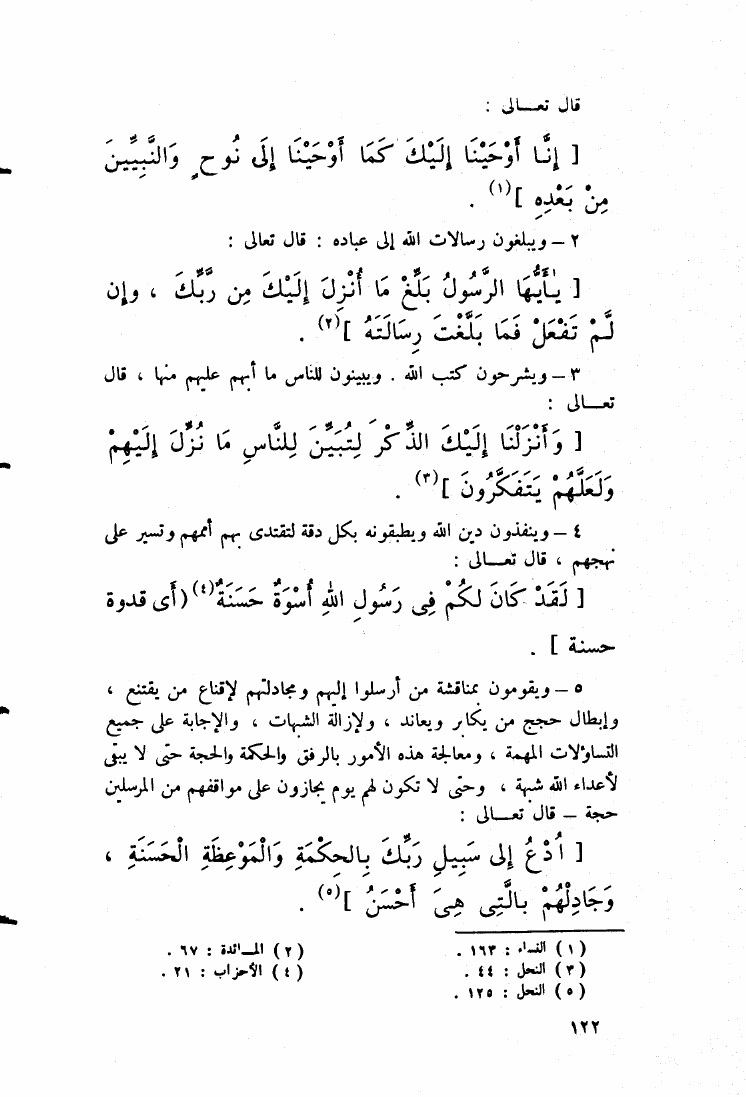 قال تعـالى :
[ إِنَّا أَوْحَيْنَا إِلَيْكَ كَمَا أَوْحَيْنَا إِلَى نُوحٍ وَالنَّبِيِّينَ
مِنْ بَعْدِهِ ](١) .
٢ – ويبلغون رسالات الله إلى عباده : قال تعالى :
[ يٰأَيُّهَا الرَّسُولُ بَلِّغْ مَا أُنْزِلَ إِلَيْكَ مِن رَّبِّكَ ، وإن
لَّمْ تَفْعَلْ فَمَا بَلَّغْتَ رِسَالَتَهُ ](٢) .
٣ – ويشرحون كتب الله . ويبينون للناس ما أبهم عليهم منها ، قال
تعـالى :
[ وَأَنْزَلْنَا إِلَيْكَ الذِّكْرَ لِتُبَيِّنَ لِلنَّاسِ مَا نُزِّلَ إِلَيْهِمْ
وَلَعَلَّهُمْ يَتَفَكَّرُونَ ](٣) .
٤ – وينفذون دين الله ويطبقونه بكل دقة لتقتدى بهم أممهم وتسير على
نهجهم ، قال تعـالى :
[ لَقَدْ كَانَ لَكُمْ فِى رَسُولِ اللهِ أُسْوَةٌ حَسَنَةٌ(٤) (أى قدوة
حسنة ] .
٥ – ويقومون بمناقشة من أرسلوا إليهم ومجادلتهم لإقناع من يقتنع ،
وإبطال حجج من يكابر ويعاند ، ولإزالة الشبهات ، والإجابة على جميع
التساؤلات المهمة ، ومعالجة هذه الأمور بالرفق والحكمة والحجة حتى لا يبقى
لأعداء الله شبهة ، وحتى لا تكون لهم يوم يجازون على مواقفهم من المرسلين
حجة – قال تعـالى :
[ ادْعُ إِلى سَبِيلِ رَبِّكَ بِالحِكْمَةِ وَالْمَوْعِظَةِ الْحَسَنَةِ ،
وَجَادِلْهُمْ بِالَّتِى هِىَ أَحْسَنُ ](٥) .
(١) النساء : ١٦٣ .
(٢) المـائدة : ٦٧ .
(٣) النحل : ٤٤ .
(٤) الأحزاب : ٢١ .
(٥) النحل : ١٢٥ .
١٢٢